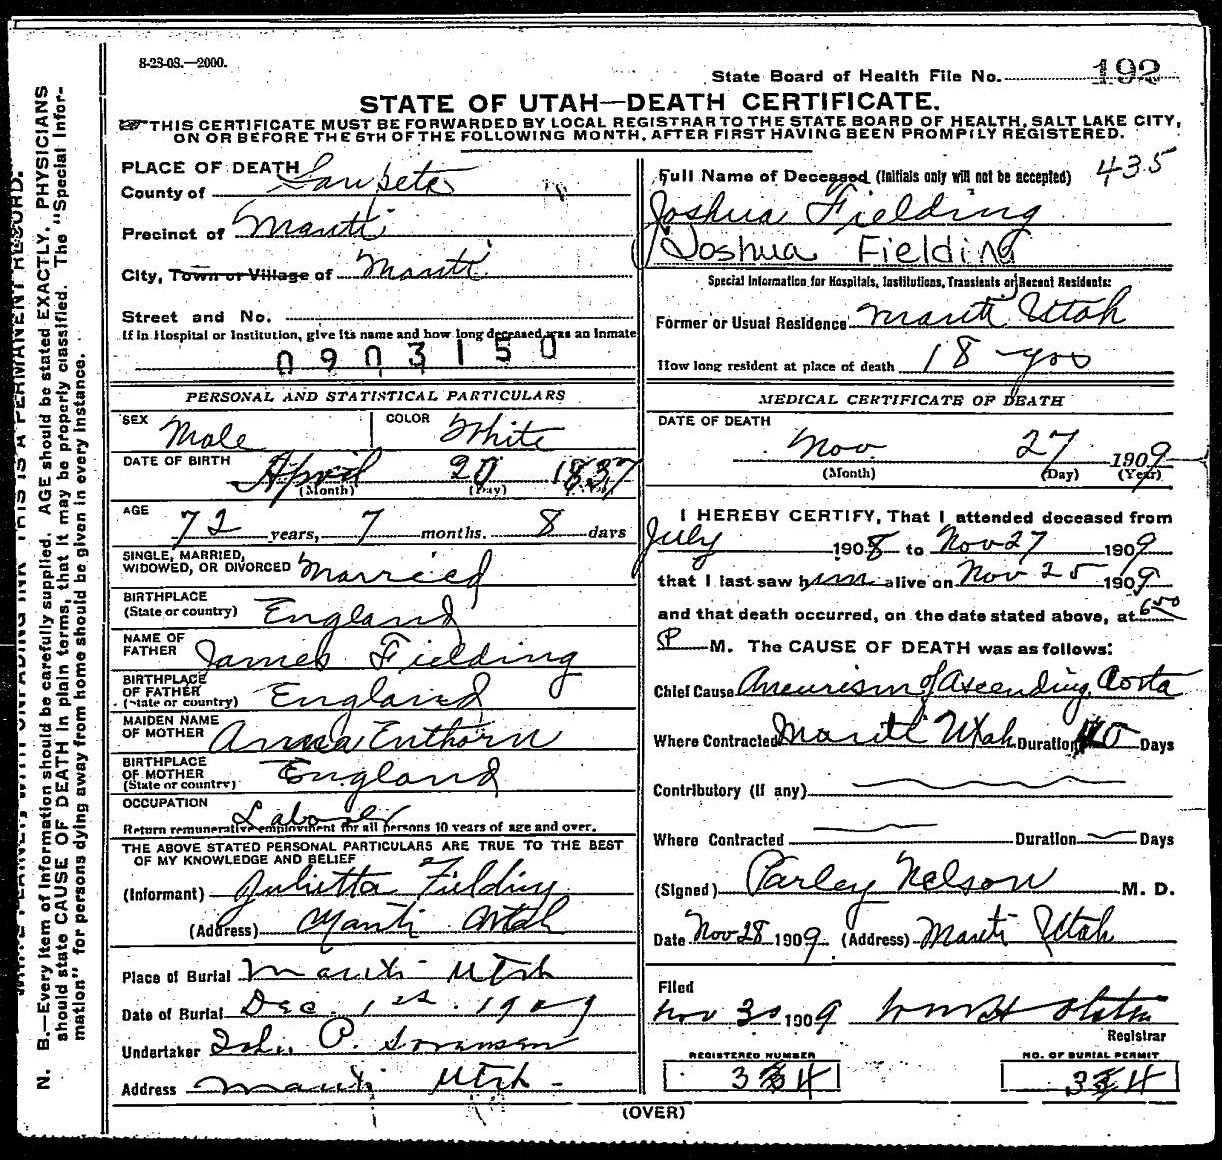 8-23-08.—2000.
State Board of Health File No. 192
STATE OF UTAH—DEATH CERTIFICATE.
THIS CERTIFICATE MUST BE FORWARDED BY LOCAL REGISTRAR TO THE STATE BOARD OF HEALTH, SALT LAKE CITY,
ON OR BEFORE THE 5TH OF THE FOLLOWING MONTH, AFTER FIRST HAVING BEEN PROMPTLY REGISTERED.
PLACE OF DEATH
County of Sanpete
Precinct of Manti
City, Town or Village of Manti
Street and No.
If in Hospital or Institution, give its name and how long deceased was an Inmate
0903150
PERSONAL AND STATISTICAL PARTICULARS
SEX Male COLOR White
DATE OF BIRTH April 20 1837
(Month) (Day)
AGE 72 years, 7 months. 8 days
SINGLE, MARRIED,
WIDOWED, OR DIVORCED Married
BIRTHPLACE
(State or country) England
NAME OF
FATHER James Fielding
BIRTHPLACE
OF FATHER
(State or country) England
MAIDEN NAME
OF MOTHER Anna Enthorn
BIRTHPLACE
OF MOTHER
(State or country) England
OCCUPATION Laborer
Return remunerative employment for all persons 10 years of age and over.
THE ABOVE STATED PERSONAL PARTICULARS ARE TRUE TO THE BEST
OF MY KNOWLEDGE AND BELIEF
(Informant) Julietta Fielding
(Address) Manti Utah
Place of Burial Manti Utah
Date of Burial Dec. 1st. 1909
Undertaker P. Soransen
Address Manti Utah
435
Full Name of Deceased (Initials only will not be accepted)
Joshua Fielding
Joshua Fielding
Special Information for Hospitals, Institutions, Transients or Recent Residents:
Former or Usual Residence Manti Utah
How long resident at place of death 18 yrs
MEDICAL CERTIFICATE OF DEATH
DATE OF DEATH
Nov 27 1909
(Month) (Day) (Year)
I HEREBY CERTIFY, That I attended deceased from
July 1908 to Nov 27 1909
that I last saw him alive on Nov 25 1909
and that death occurred, on the date stated above, at 6:00
P M. The CAUSE OF DEATH was as follows:
Chief Cause Aneurism of Ascending Aorta
Where Contracted Manti Utah Duration Days
Contributory (if any)
Where Contracted Duration Days
(Signed) Parley Nelson M. D.
Date Nov 28 1909. (Address) Manti Utah
Filed
Nov 30 1909
Registrar
REGISTERED NUMBER NO. OF BURIAL PERMIT
(OVER)
N. B.—Every item of information should be carefully supplied. AGE should be stated EXACTLY. PHYSICIANS
should state CAUSE OF DEATH in plain terms, that it may be properly classified. The "Special Infor-
mation" for persons dying away from home should be given in every instance.